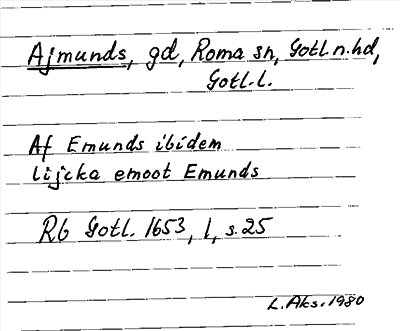 Ajmunds, gd, Roma sn, Gotl n. hd,
Gotl. l.
Af Emunds ibidem
lijcka emoot Emunds
Rb Gotl. 1653, 1, s. 25
L. Aks. 1980